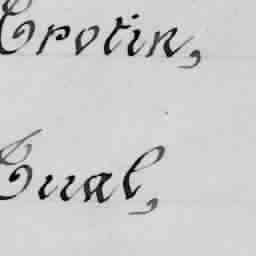 Crotin,
Gual,